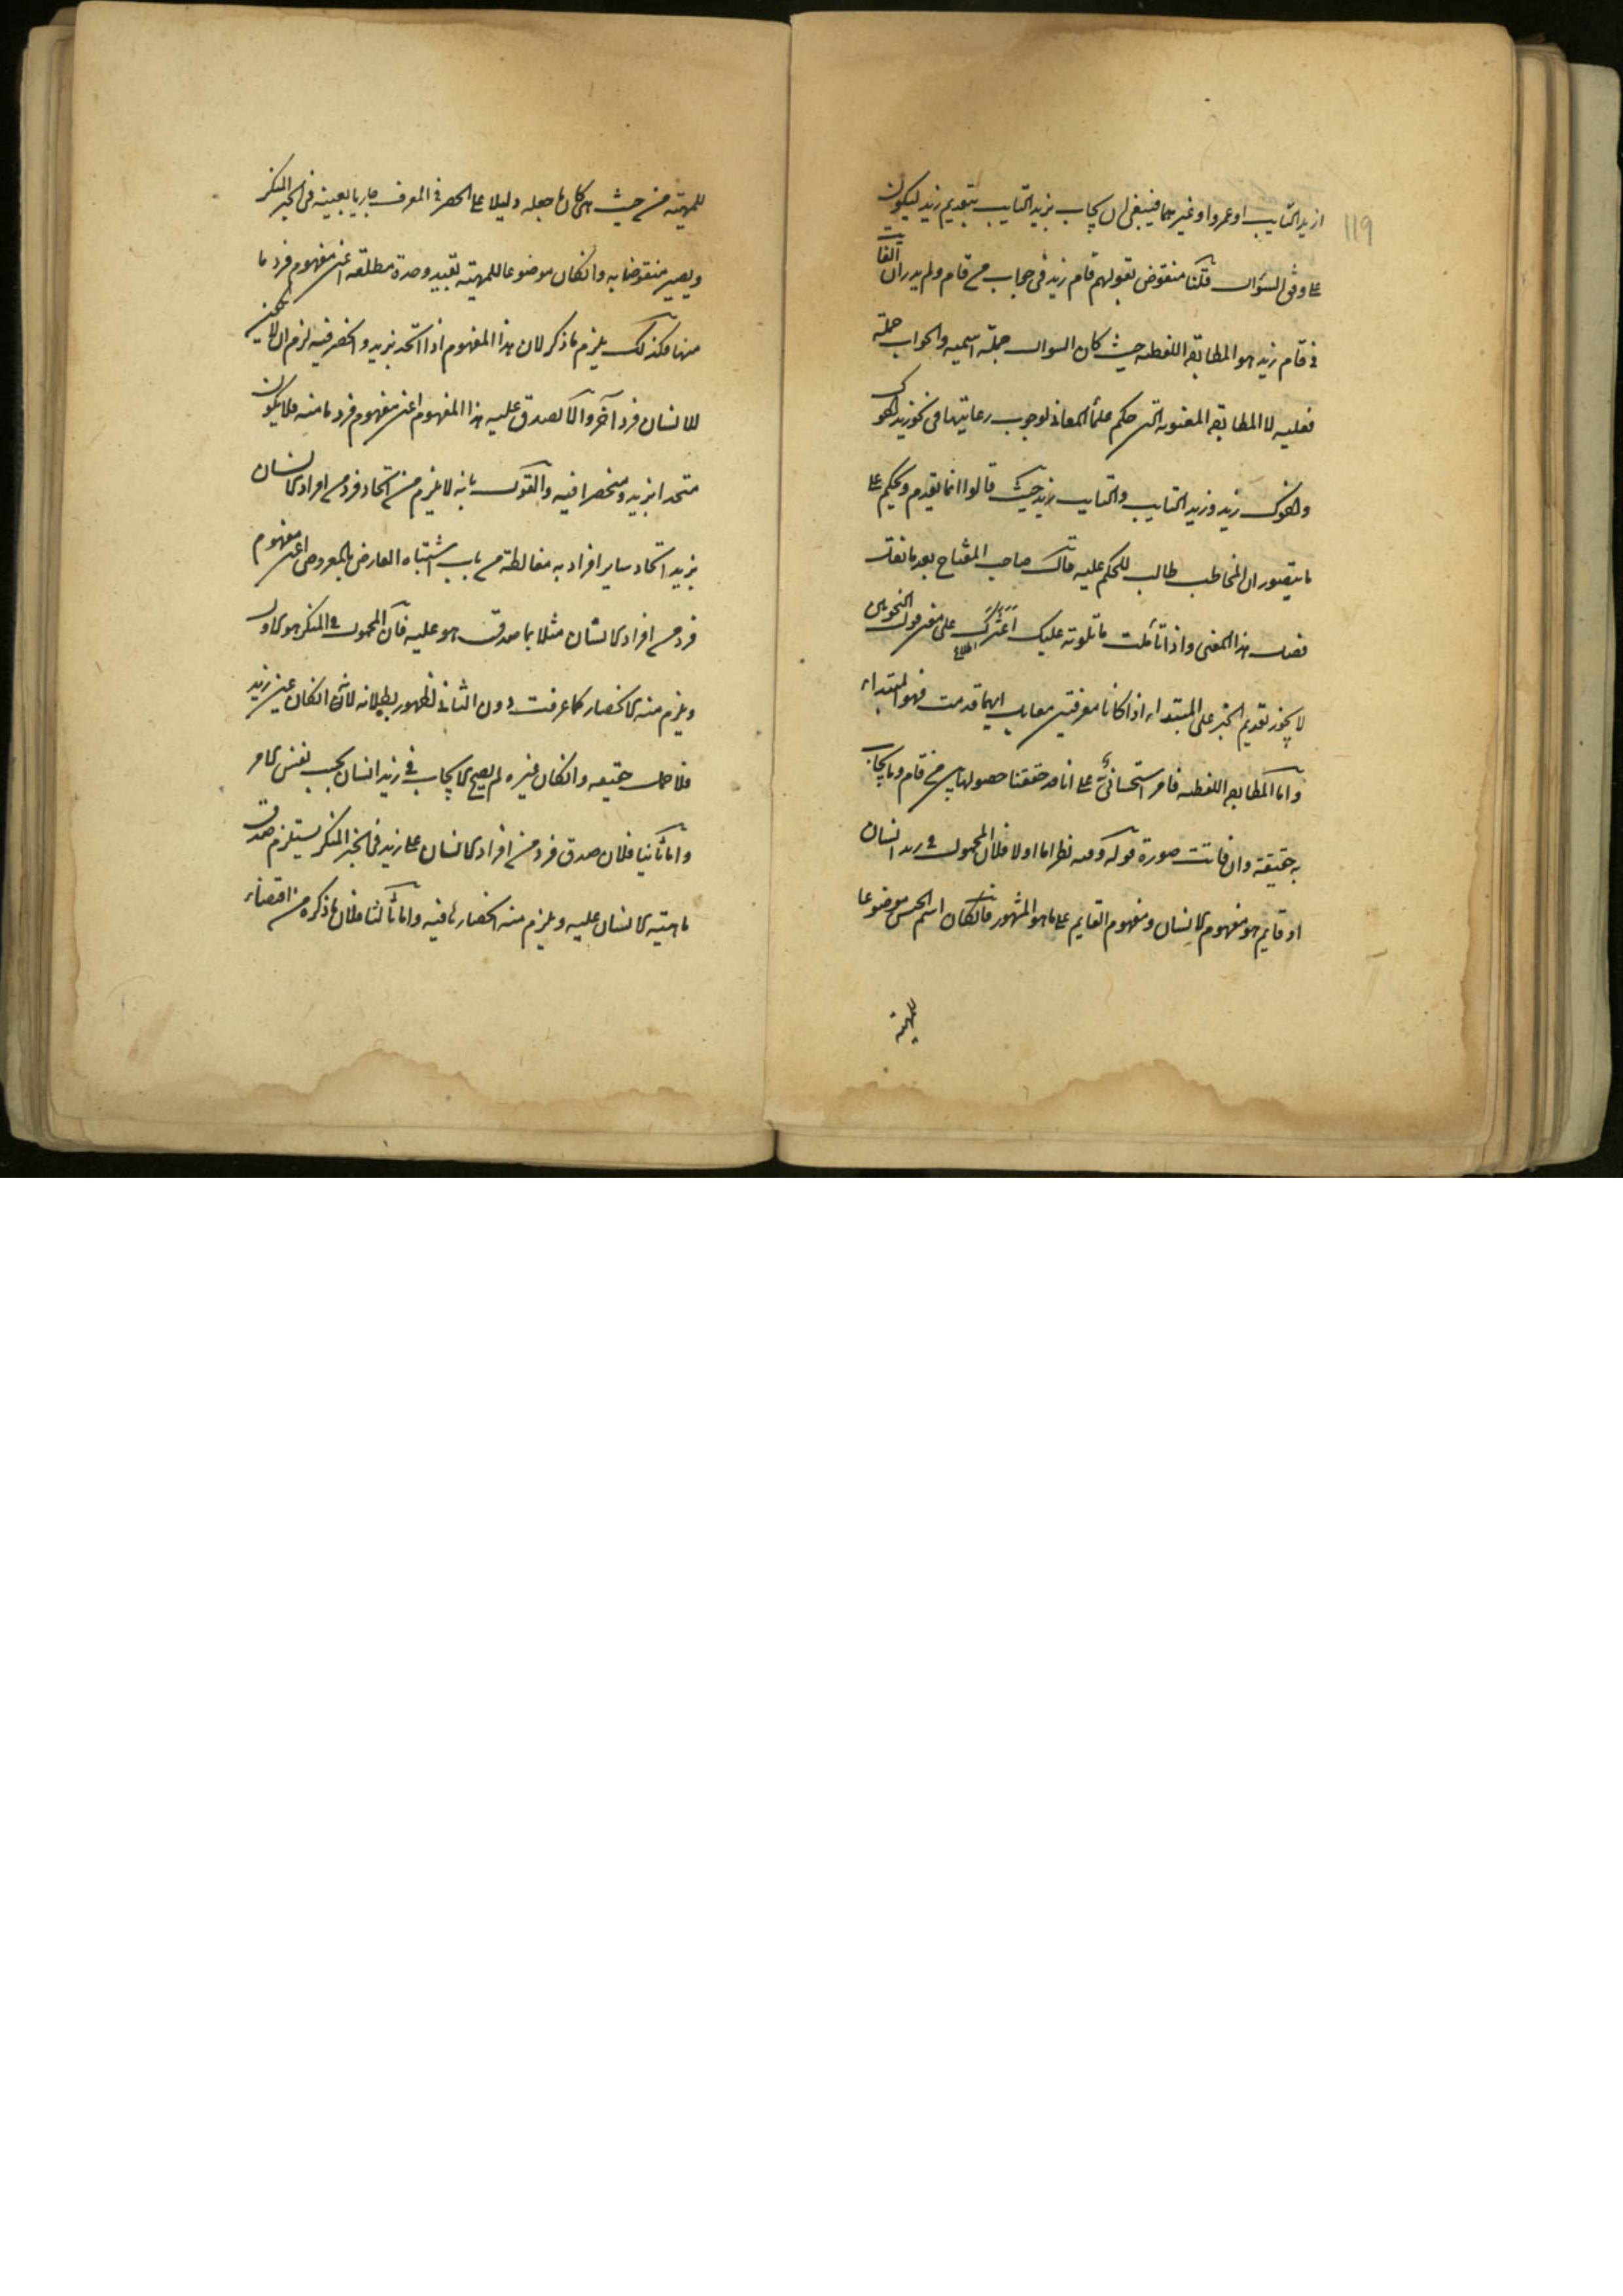 119
ازيد التايب او عمرو او غيرهما فينبغى ان يجاب بزيد التايب بتقديم زيد ليكون
على وفق السؤال قلنا منقوض بقولهم قام زيد فى جواب من قام ولم يدر ان الفايت
فى قام زيد هو المطابقه اللفظيه حيث كان السوال جملة اسميه والجواب جملة
فعليه لا المطابقه المعنويه التى حكم علماء المعانى لوجوب رعايتها فى نحو زيد اخوك
واخوك زيد وزيد التايب والتايب زيد حيث قالوا انما يقدم ويحكم على
ما يتصور ان المخاطب طالب للحكم عليه قال صاحب المفتاح بعد ما نقل
هذا المعنى واذا تاملت ما تلوته عليك اعثرك على معنى قول النحويين
اطلاع
لا يجوز تقديم الخبر على المبتداء اذا كانا معرفتين معا بل ايهما قدمت فهو المبتداء
واما المطابقه اللفظيه فامر استحسانى على انا قد حققنا حصولها بين من قام وما يجاب
به حقيقة وان فاتت صورة قوله وفيه نظر اما اولا فلان المحمول فى زيد انسان
او قايم هو مفهوم الانسان ومفهوم القايم على ما هو المشهور فان كان اسم الجنس موضوعا
للمهية
للمهية من حيث هى كان ما جعله دليلا على الحصر فى المعرف جاريا بعينه فى الخبر المنكر
ويصير منقوضا به وان كان موضوعا للمهية بقييد وحدة مطلقه اعنى مفهوم فرد ما
منها فكذلك يلزم ما ذكر لان هذا المفهوم اذا اتحد بزيد وانحصر فيه لزم ان لا يكون
للانسان فرد آخر والا لصدق عليه هذا المفهوم اعنى مفهوم فرد ما منه فلا يكون
متحدا بزيد ومنحصرا فيه والقول بانه لا يلزم من اتحاد فرد من افراد الانسان
بزيد اتحاد ساير افراد به مغالطة من باب اشتباه العارض بالمعروض اعنى مفهوم
فرد من افراد الانسان مثلا بما صدق هو عليه فان المحمول فى المنكر هو الاول
ويلزم منه الانحصار كما عرفت دون الثانى لظهور بطلانه لانه ان كان عين زيد
فلا حمل حقيقه وان كان غيره لم يصح الايجاب فى زيد انسان بحسب نفس الامر
واما ثانيا فلان صدق فرد من افراد الانسان على زيد فى الخبر المنكر يستلزم صدق
ماهية الانسان عليه ويلزم منه انحصارها فيه واما ثالثا فلان ما ذكره من اقتضاء